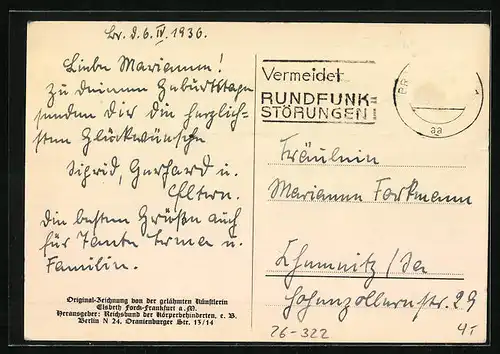 Br. d. 6. IV. 1936.
Liebe Marianne!
Zu Deinem Geburtstage
senden Dir die herzlich-
sten Glückwünsche
Sigrid, Gerhard u.
Eltern.
Die besten Grüße auch
für Tante Erna u.
Familie.
Original-Zeichnung von der gelähmten Künstlerin
Elsbeth Forck-Frankfurt a. M.
Herausgeber: Reichsbund der Körperbehinderten, e. V.
Berlin N 24, Oranienburger Str. 13/14
Vermeidet
RUNDFUNK=
STÖRUNGEN!
aa
Fräulein
Marianne Fortmann
Chemnitz/Sa
Hohenzollernstr. 29
26-322